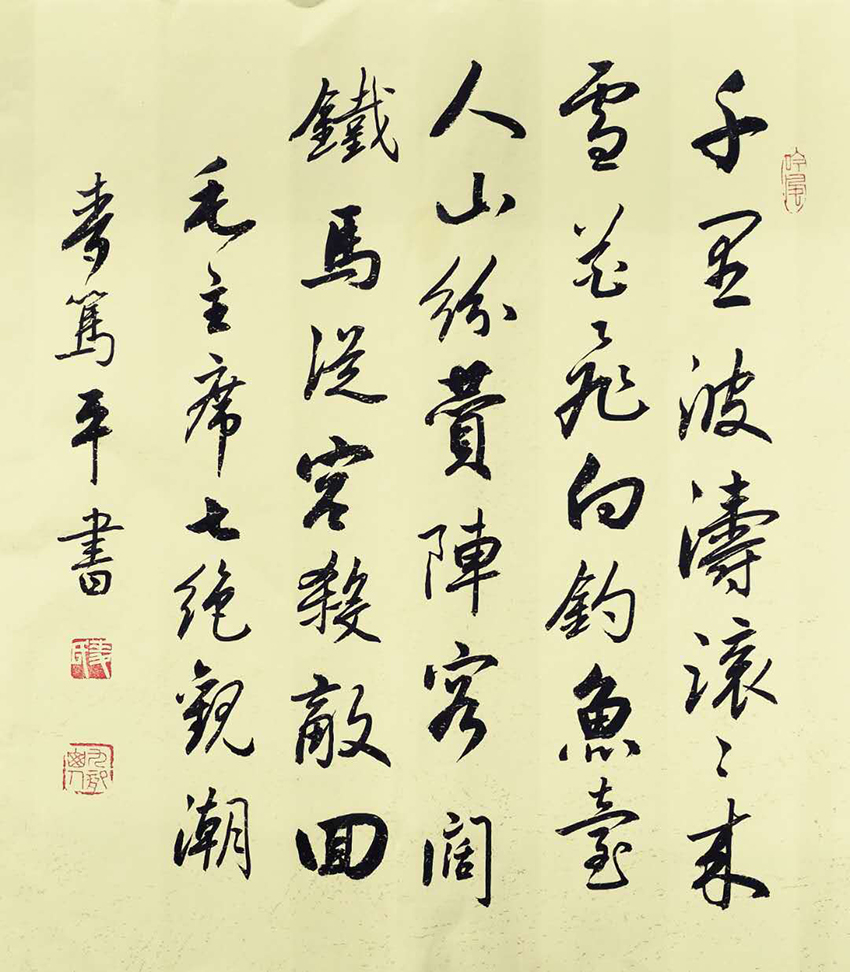 千里波濤滾〻來
雪花飛向釣魚臺
人山紛贊陣容闊
鐵馬從容殺敵回
毛主席七絕觀潮
篤平書